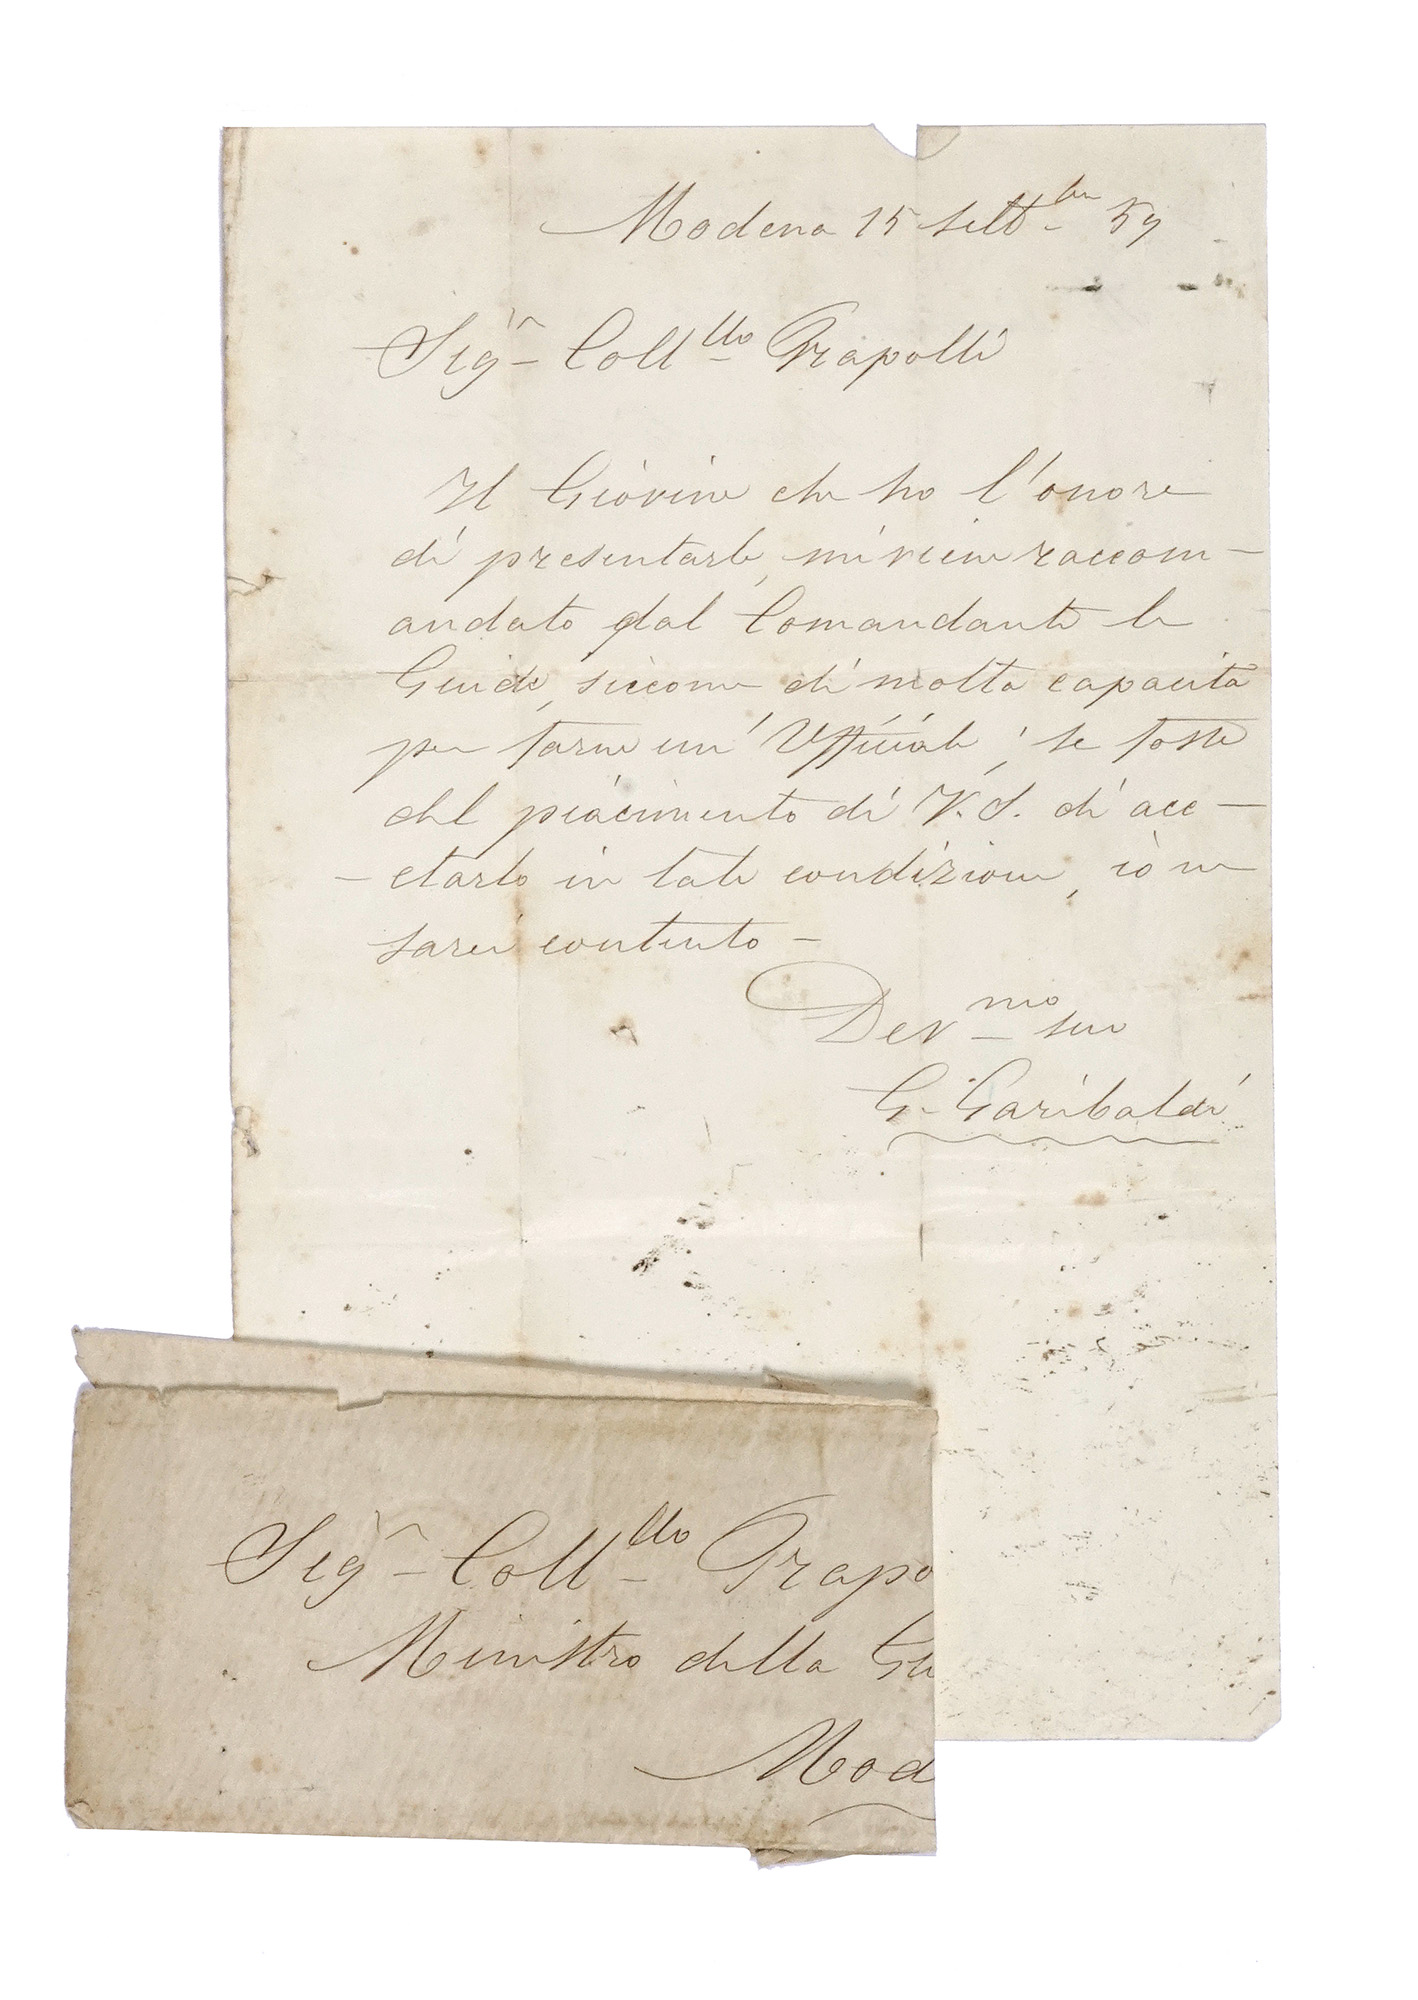 Modena 15 Sett.bre 59
Sigr. Coll.llo Frapolli
Il Giovine che ho l'onore
di presentarle, mi viene raccom-
andato dal Comandante le
Guide, siccome di molta capacità
per farne un' Ufficiale; se fosse
del piacimento di V.S. di acc-
-etarlo in tale condizione, io ne
sarei contento -
Dev.mo suo
G. Garibaldi
Sigr. Coll.llo Frapo
Ministro della Gu
Mod